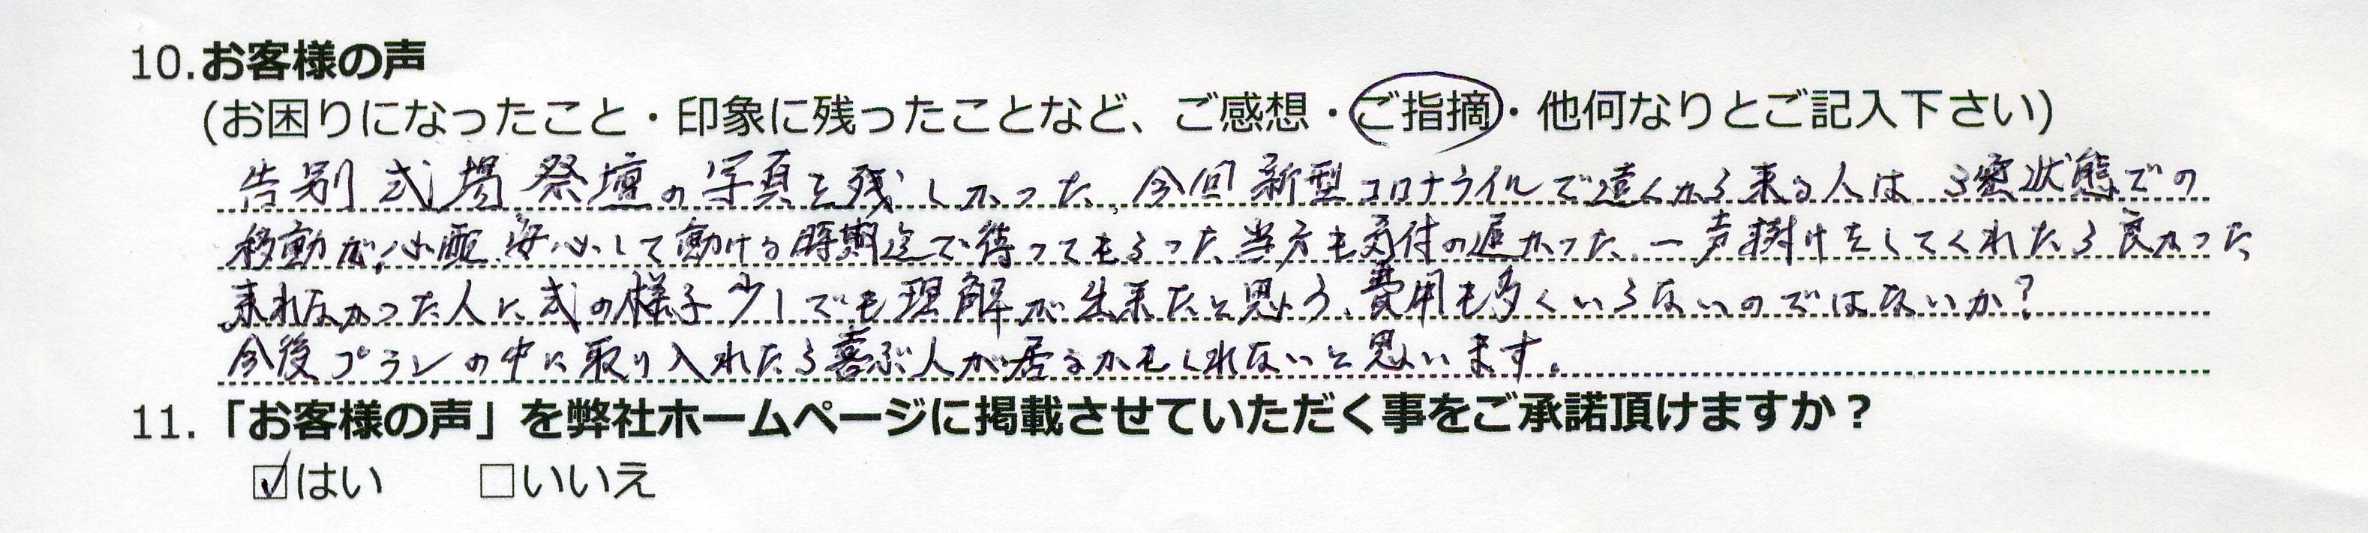 10.お客様の声
(お困りになったこと・印象に残ったことなど、ご感想・ご指摘・他何なりとご記入下さい)
告別式場祭壇の写真を残しかった、今回新型コロナウイルで遠くから来る人は3密状態での
移動が心配、安心して動ける時期迄で待ってもらった当方も気付の遅かった、一声掛けをしてくれたら良かった
来れなかった人に式の様子少しでも理解が出来たと思よう、費用も多くいらないのではないか?
今後プランの中に取り入れたら喜ぶ人が居るかもしれないと思います。
11.「お客様の声」を弊社ホームページに掲載させていただく事をご承諾頂けますか？
☑はい □いいえ